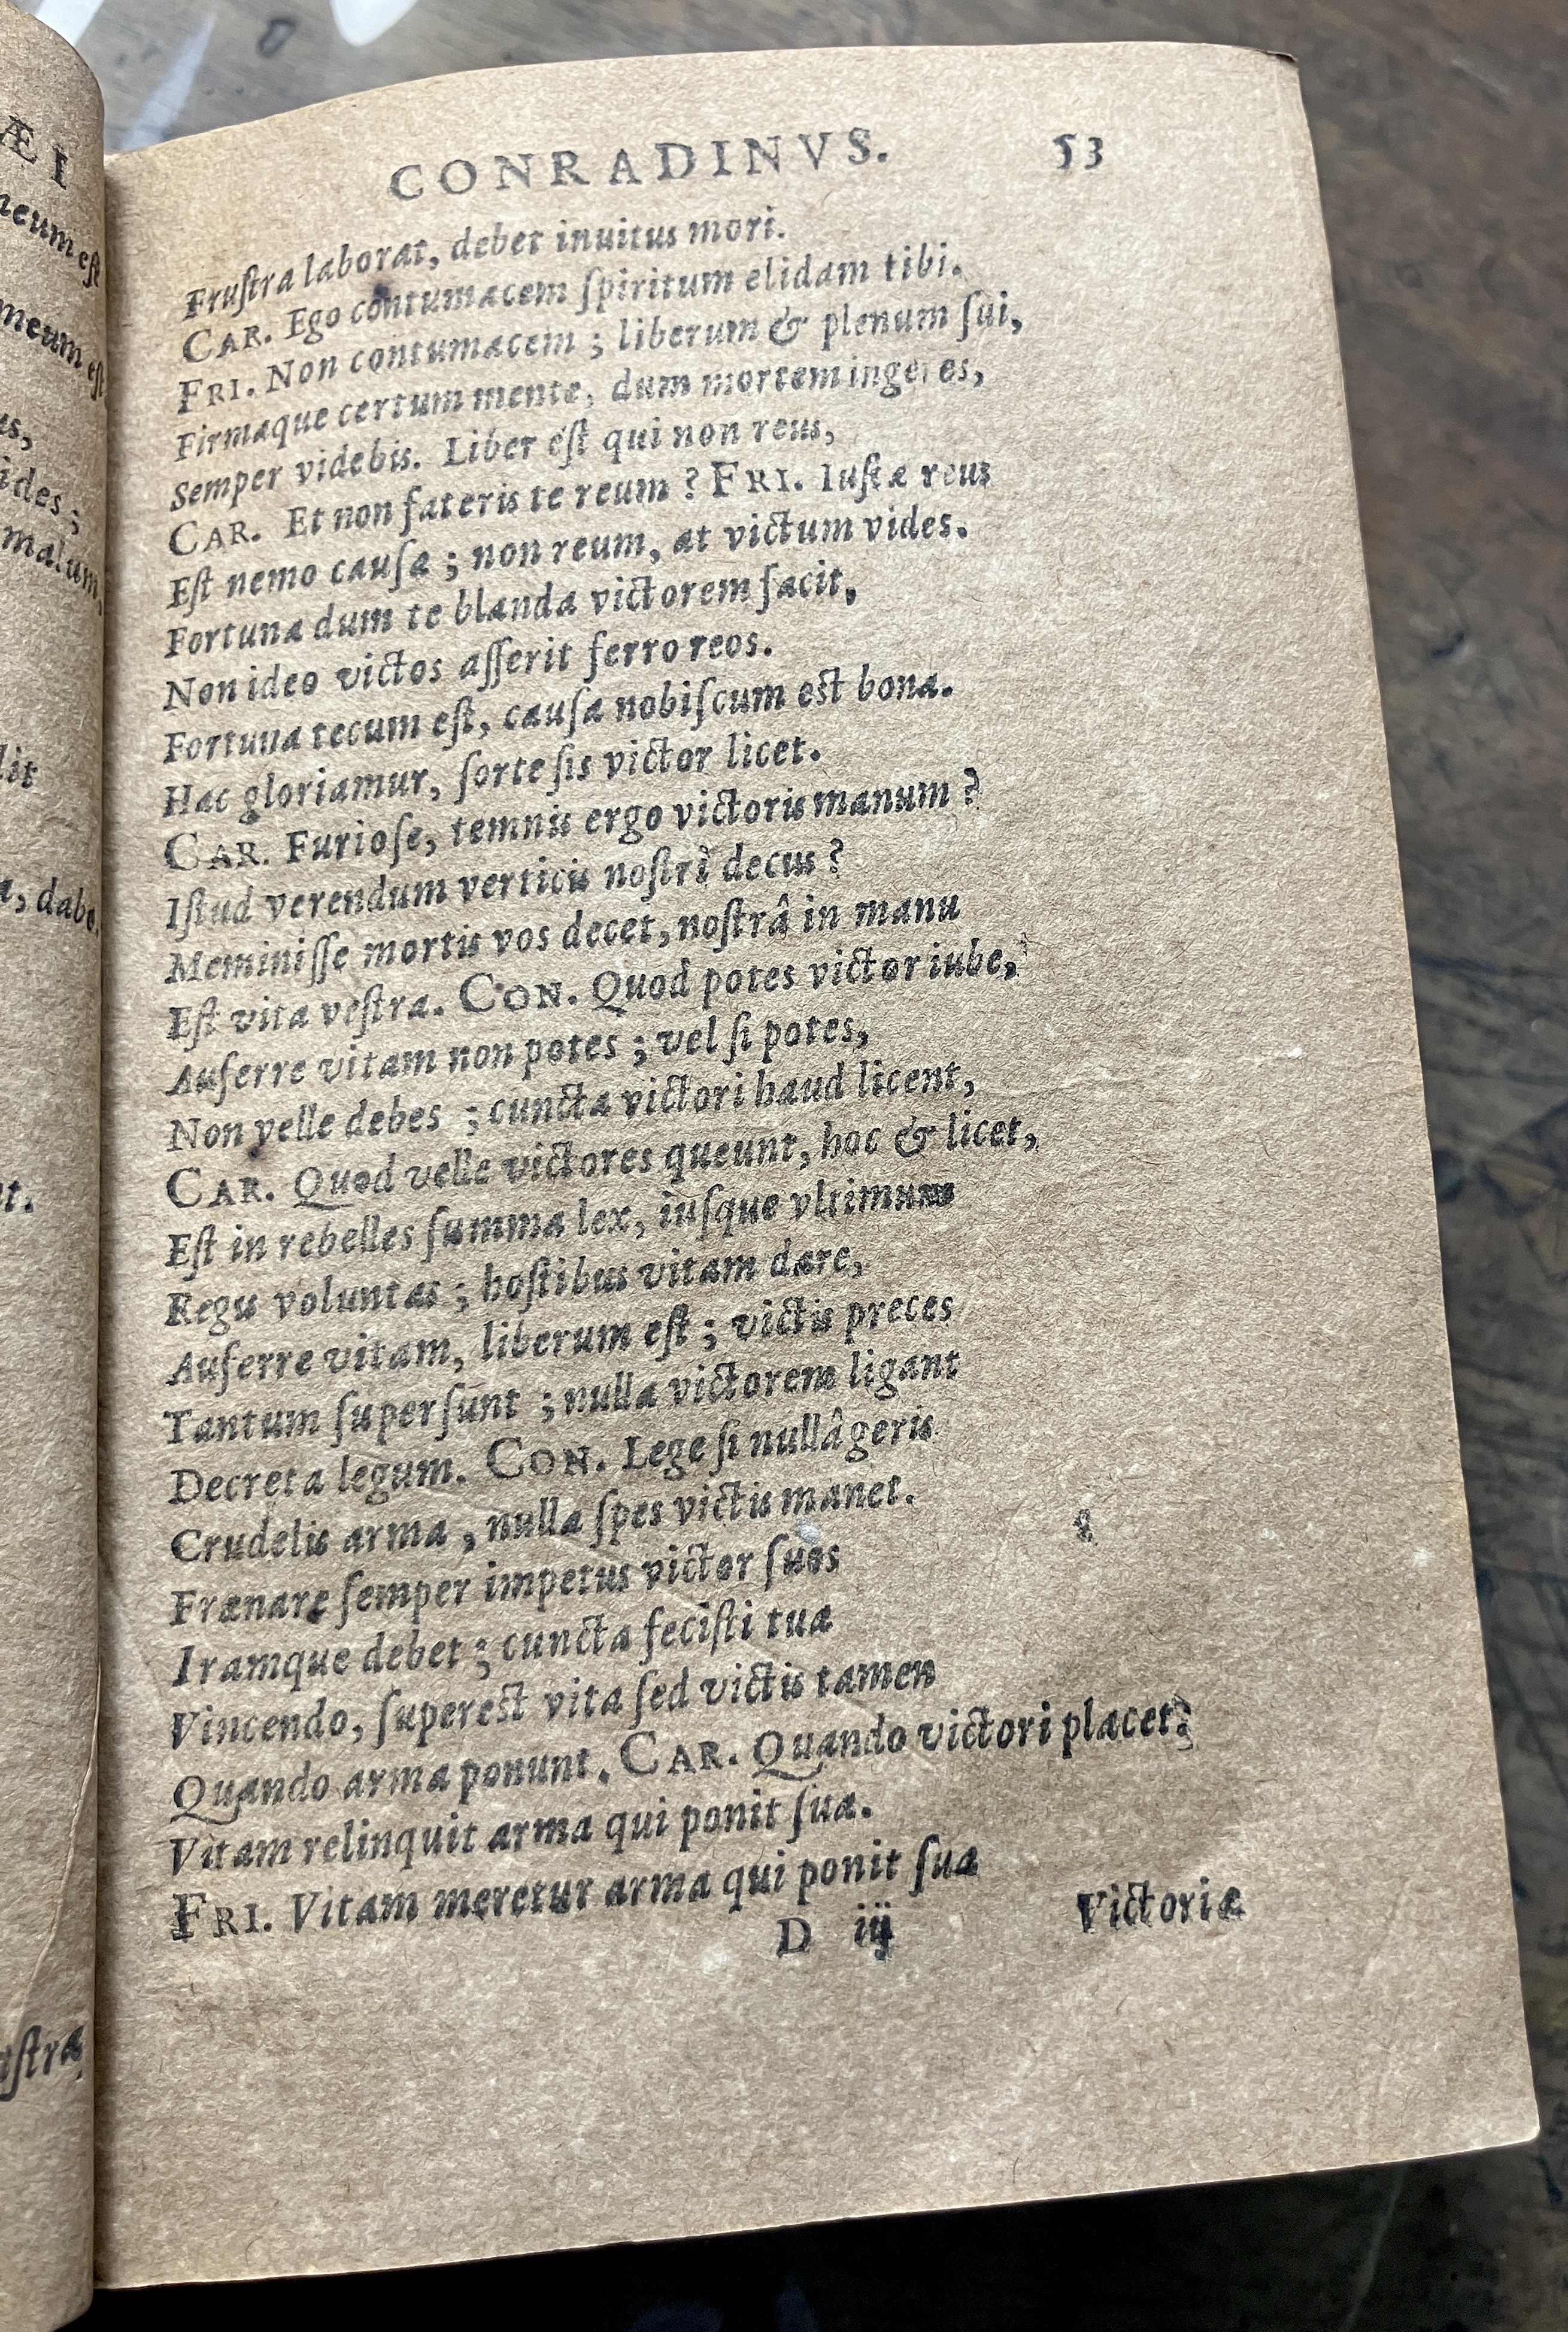 ÆI
neum eſt
meum eſt
us,
ides;
malum,
lit
a, dabo.
nt.
uſtra
CONRADINVS. 53
Fruſtra laborat, debet inuitus mori.
CAR. Ego contumacem ſpiritum elidam tibi.
FRI. Non contumacem; liberum & plenum ſui,
Firmaque certum mente, dum mortem ingeres,
Semper videbis. Liber eſt qui non reus,
CAR. Et non fateris te reum? FRI. Iuſtæ reus
Eſt nemo cauſæ; non reum, at victum vides.
Fortuna dum te blanda victorem facit,
Non ideo victos aſſerit ferro reos.
Fortuna tecum eſt, cauſa nobiſcum est bona.
Hac gloriamur, ſorte ſis victor licet.
CAR. Furioſe, temnis ergo victoris manum?
Iſtud verendum verticis noſtri decus?
Meminiſſe mortis vos decet, noſtrâ in manu
Eſt vita veſtra. CON. Quod potes victor iube,
Auferre vitam non potes; vel ſi potes,
Non velle debes; cuncta victori haud licent,
CAR. Quod velle victores queunt, hoc & licet,
Eſt in rebelles ſumma lex, iuſque vltimum
Regis voluntas; hoſtibus vitam dare,
Auferre vitam, liberum eſt; victis preces
Tantum ſuperſunt; nulla victorem ligant
Decreta legum. CON. Lege ſi nullâ geris
Crudelis arma, nulla ſpes victis manet.
Frænare ſemper impetus victor ſuos
Iramque debet; cuncta feciſti tua
Vincendo, ſuperest vita ſed victis tamen
Quando arma ponunt. CAR. Quando victori placet?
Vitam relinquit arma qui ponit ſua.
FRI. Vitam meretur arma qui ponit ſua
D iij Victoriæ